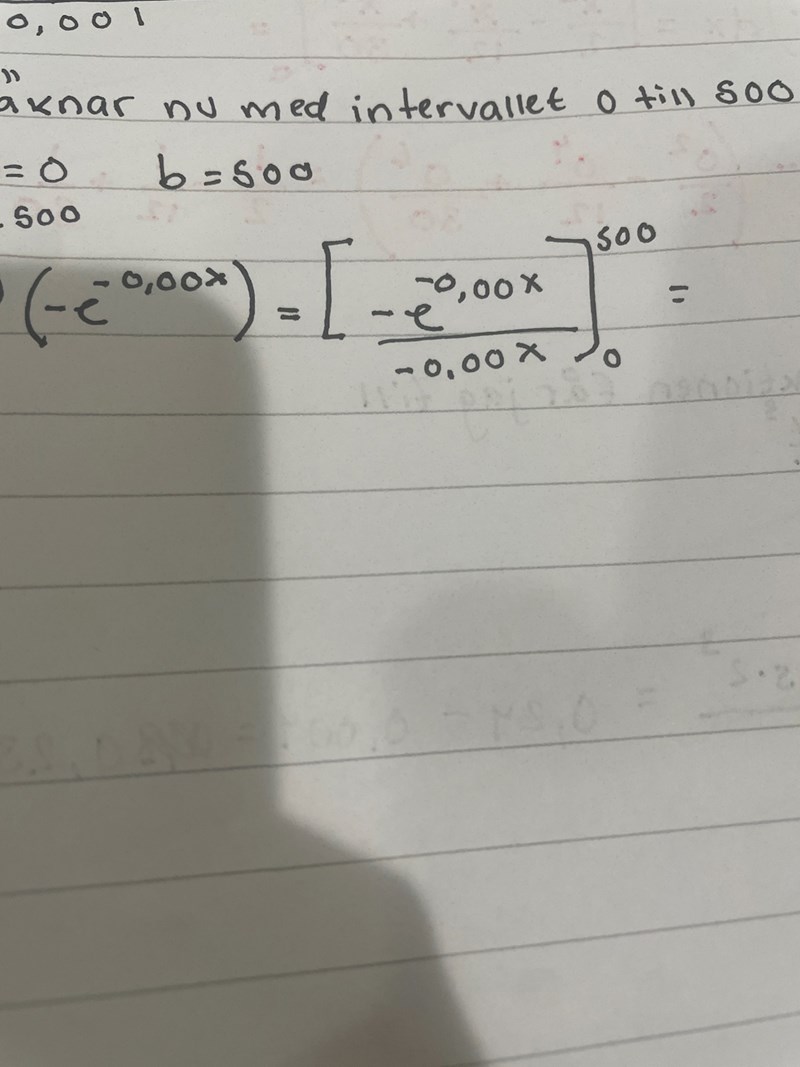 0,001
äknar nu med intervallet 0 till 500
= 0 b = 500
. 500
(-e^-0,00x) = [-e^-0,00x / -0,00x]_0^500 =